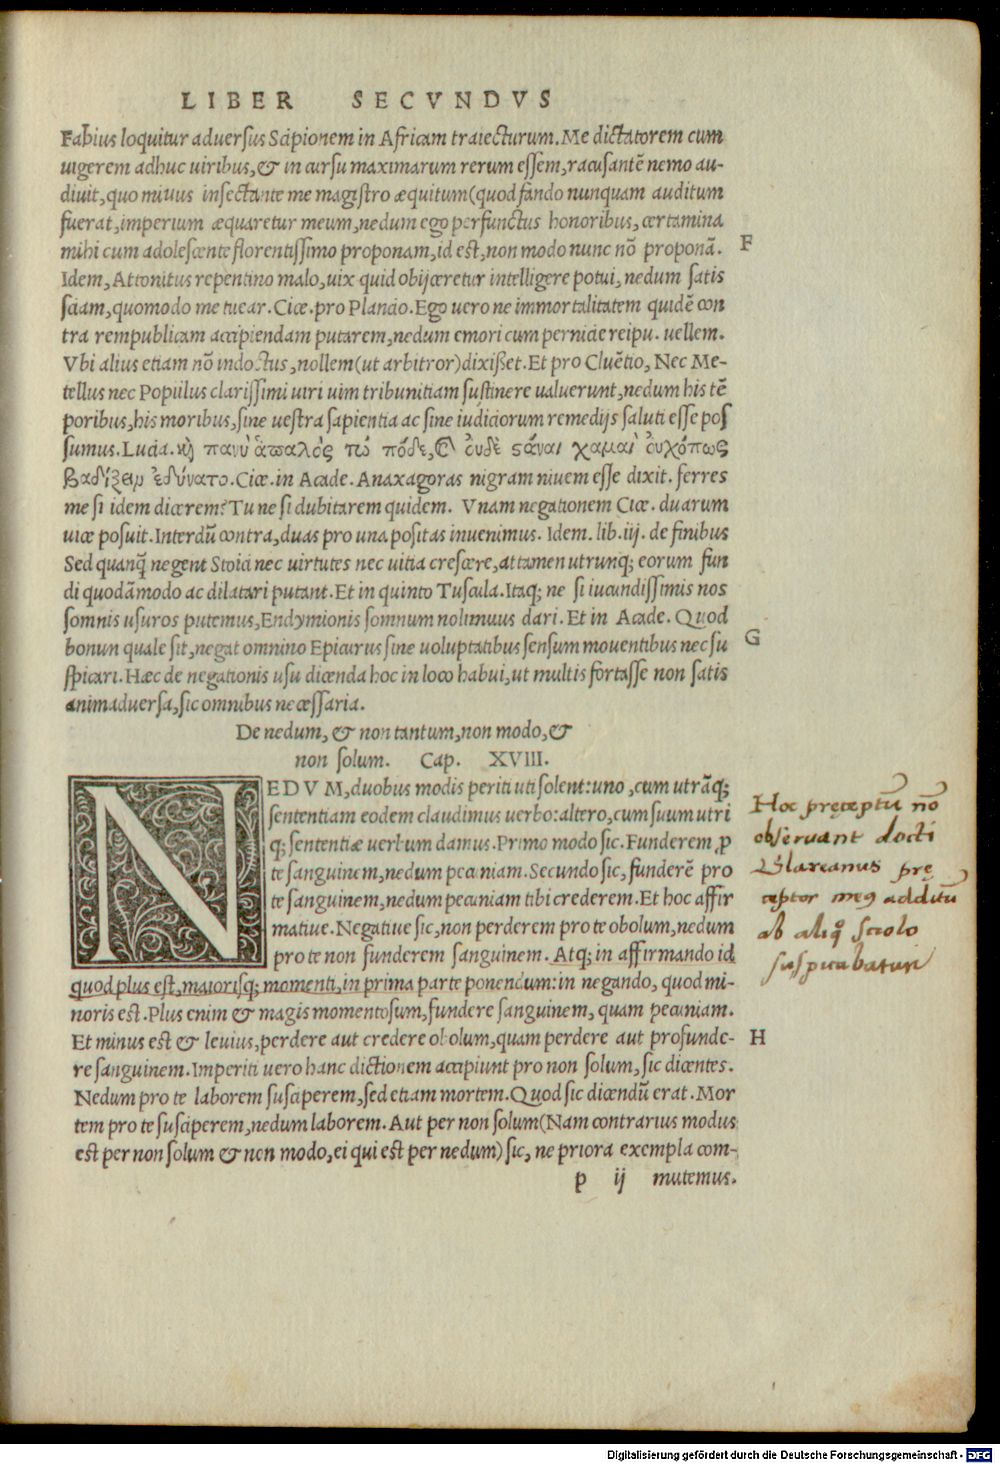 LIBER SECVNDVS
Fabius loquitur aduersus Scipionem in Africam traiecturum. Me dictatorem cum
uigerem adhuc uiribus, & in cursu maximarum rerum essem, racusantē nemo au-
diuit, quo minus insectante me magistro æquitum (quod fando nunquam auditum
fuerat, imperium æquaretur meum, nedum ego perfunctus honoribus, certamina
mihi cum adolescente florentissimo proponam, id est, non modo nunc nō proponā.
F
Idem, Attonitus repentino malo, uix quid obijceretur intelligere potui, nedum satis
sciam, quomodo me tuear. Cice. pro Plancio. Ego uero ne immortalitatem quidē con
tra rempublicam accipiendam putarem, nedum emori cum pernicie reipu. uellem.
Vbi alius etiam nō indoctus, nollem (ut arbitror) dixißet. Et pro Cluētio, Nec Me-
tellus nec Popilius clarissimi uiri uim tribunitiam sustinere ualuerunt, nedum his tē
poribus, his moribus, sine uestra sapientia ac sine iudiciorum remedijs salui esse pos
sumus. Lucia. πανὺ πόδε, οὐδὲ χαμαὶ
ἐδύνατο. Cice. in Acade. Anaxagoras nigram niuem esse dixit. ferres
me si idem dicerem? Tu ne si dubitarem quidem. Vnam negationem Cice. duarum
uice posuit. Interdū contra, duas pro una positas inuenimus. Idem. lib. iij. de finibus
Sed quanq̃ negent Stoici nec uirtutes nec uitia crescere, attamen utrunq; eorum fun
di quodāmodo ac dilatari putant. Et in quinto Tuscula. Itaq; ne si iucundissimis nos
somnis usuros putemus, Endymionis somnum nolimuus dari. Et in Acade. Quod
G
bonun quale sit, negat omnino Epicurus sine uoluptatibus sensum mouentibus nec su
spicari. Hæc de negationis usu dicenda hoc in loco habui, ut multis fortasse non satis
animaduersa, sic omnibus necessaria.
De nedum, & non tantum, non modo, &
non solum. Cap. XVIII.
NEDVM, duobus modis periti uti solent: uno, cum utrāq;
sententiam eodem claudimus uerbo: altero, cum suum utri
q; sententiæ uerbum damus. Primo modo sic. Funderem p
te sanguinem, nedum pecuniam. Secundo sic, funderē pro
te sanguinem, nedum pecuniam tibi crederem. Et hoc affir
matiue. Negatiue sic, non perderem pro te obolum, nedum
pro te non funderem sanguinem. Atq; in affirmando id
quod plus est, maiorisq; momenti, in prima parte ponendum: in negando, quod mi-
noris est. Plus enim & magis momentosum, fundere sanguinem, quam pecuniam.
Et minus est & leuius, perdere aut credere obolum, quam perdere aut profunde-
H
re sanguinem. Imperiti uero hanc dictionem accipiunt pro non solum, sic dicentes.
Nedum pro te laborem susciperem, sed etiam mortem. Quod sic dicendū erat. Mor
tem pro te susciperem, nedum laborem. Aut per non solum (Nam contrarius modus
est per non solum & non modo, ei qui est per nedum) sic, ne priora exempla com-
p ij mutemus.
Hoc pręceptū nō
obseruant docti
Glareanus prę
ceptor meꝰ additū
ab aliqͦ sciolo
suspicabatur
Digitalisierung gefördert durch die Deutsche Forschungsgemeinschaft - DFG